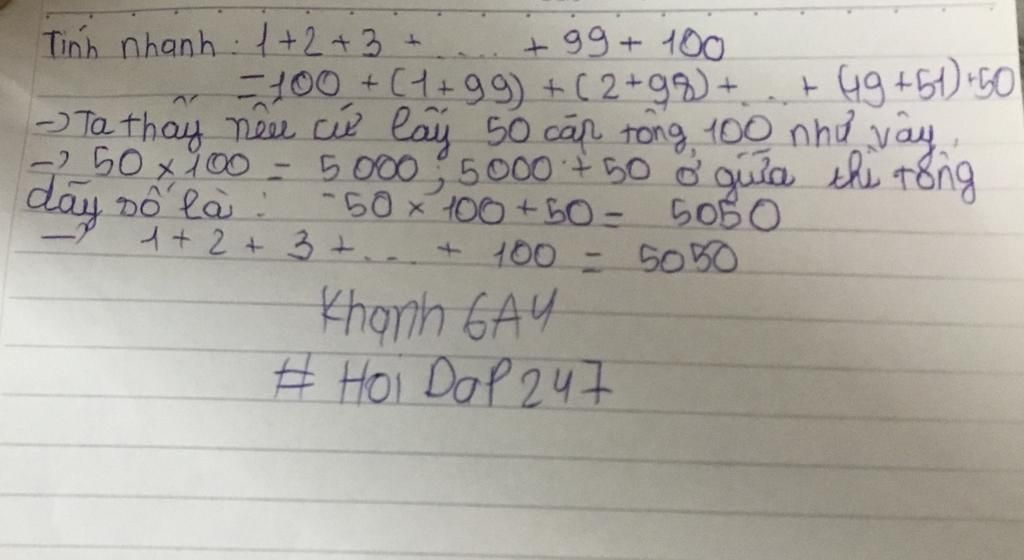 Tính nhanh : 1+2+3 + .... + 99 + 100
= 100 + (1+99) + (2+98) + ... + (49+51)+50
→ Ta thấy nếu cứ lấy 50 cặp tổng 100 như vậy.
→ 50 x 100 = 5000 ; 5000 + 50 ở giữa thì tổng
dãy số là : 50 x 100 + 50 = 5050
→ 1 + 2 + 3 + ... + 100 = 5050
Khanh 6A4
# Hoi Dap 247